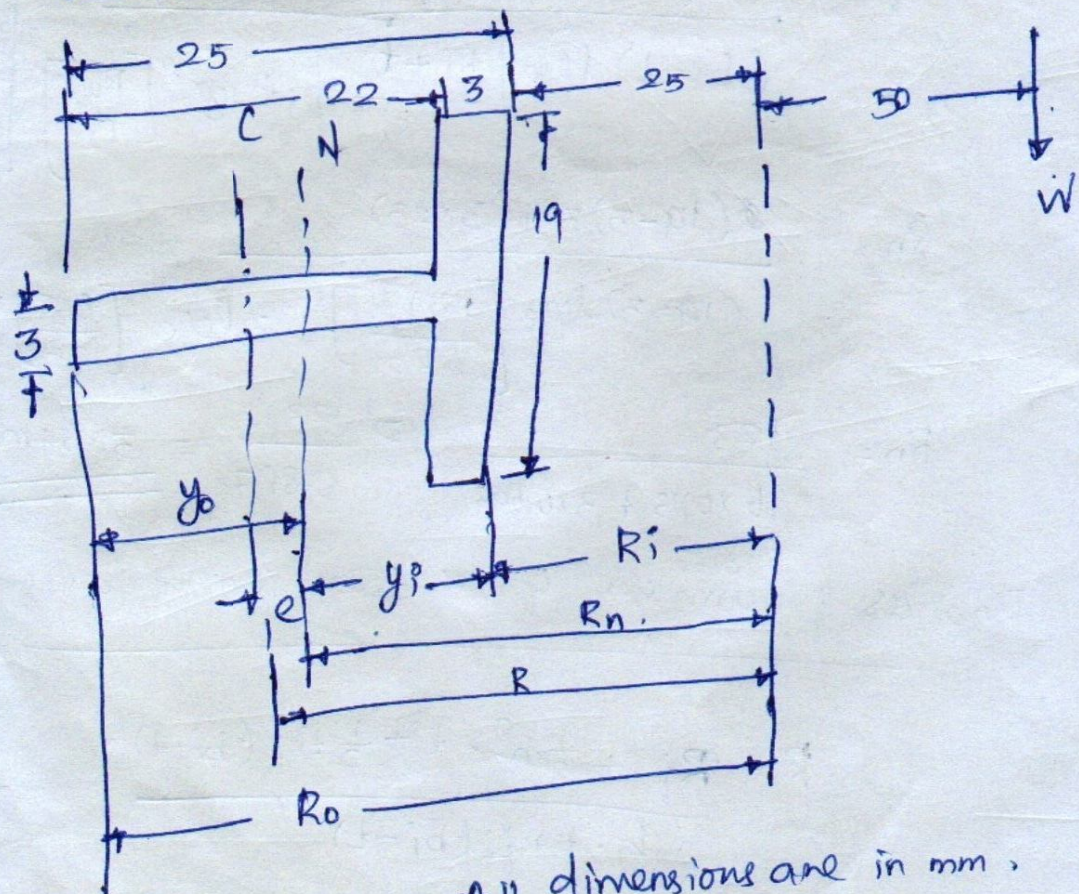 25
22 3 25 50
C N
19
W
3
yo
yi Ri
e
Rn.
R
Ro
All dimensions are in mm.